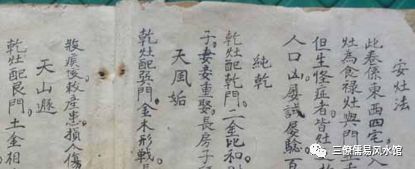 安灶法
此卷係東西四宅
灶為食祿灶與門
但生怪症者皆
人口凶屢試屢驗百
純乾
乾灶配乾門二金比和
子。妻妾重娶。長房子
天風姤
乾灶配巽門。金木形戰。長
殺瘓咳救產患損人傷
天山遯
乾灶配艮門。土金相
三僚儒易风水馆